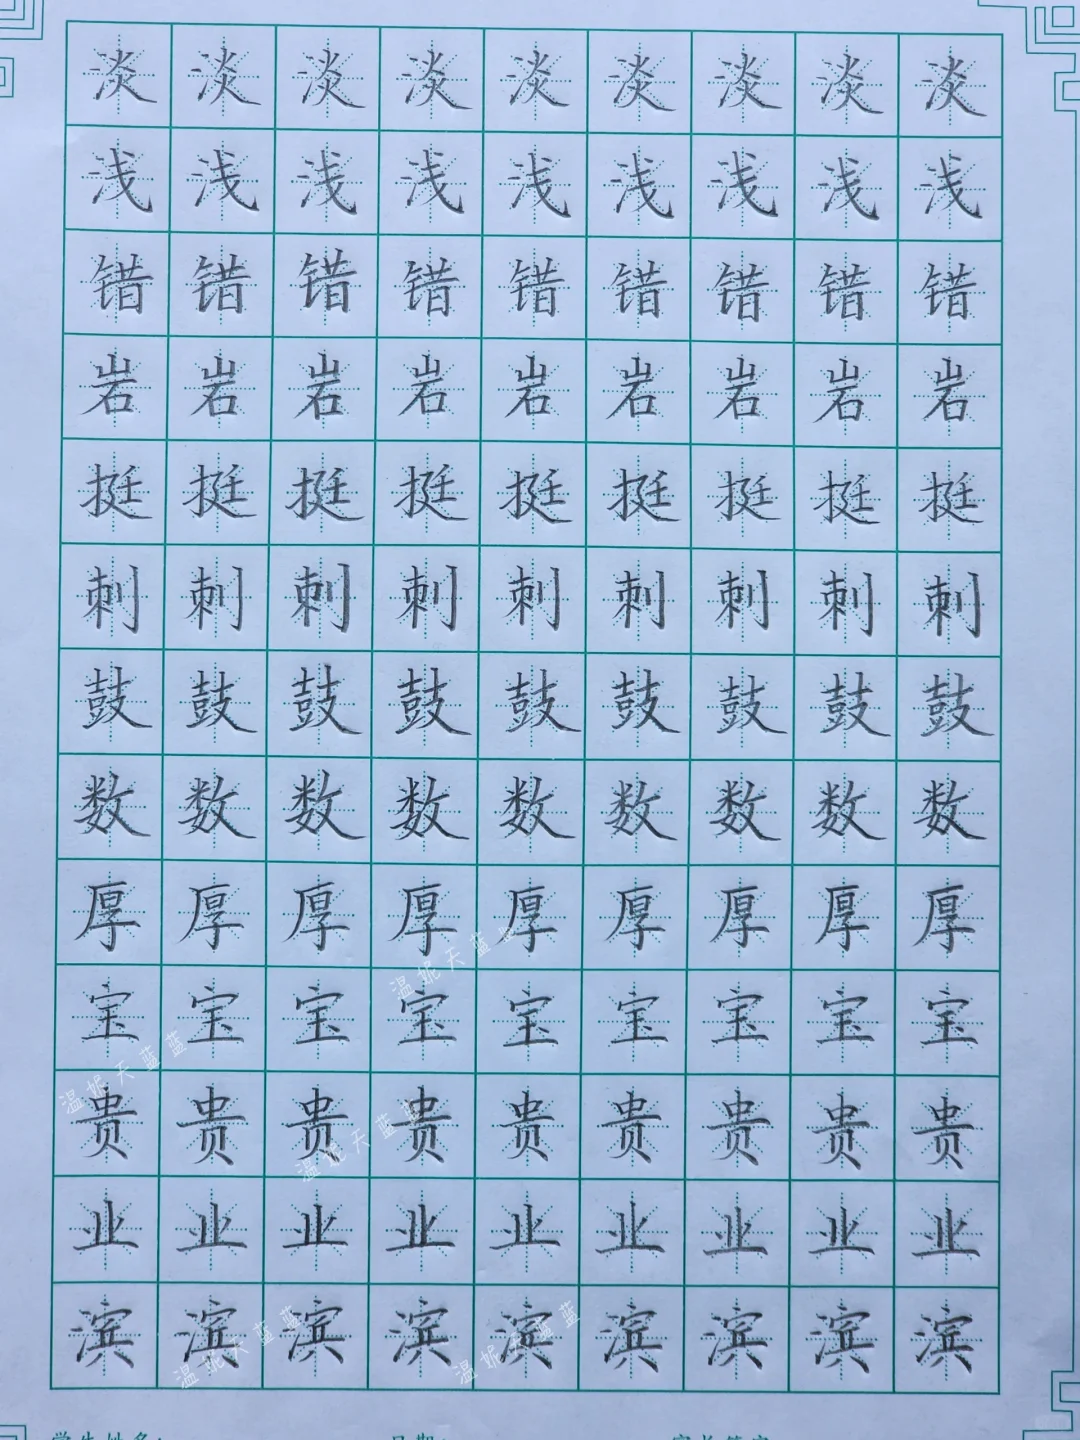 淡淡淡淡淡淡淡淡淡
浅浅浅浅浅浅浅浅浅
错错错错错错错错错
岩岩岩岩岩岩岩岩岩
挺挺挺挺挺挺挺挺挺
刺刺刺刺刺刺刺刺刺
鼓鼓鼓鼓鼓鼓鼓鼓鼓
数数数数数数数数数
厚厚厚厚厚厚厚厚厚
温妮天蓝蓝
宝宝宝宝宝宝宝宝宝
温妮天蓝蓝
贵贵贵贵贵贵贵贵贵
温妮天蓝蓝
业业业业业业业业业
滨滨滨滨滨滨滨滨滨
温妮天蓝蓝
温妮天蓝蓝